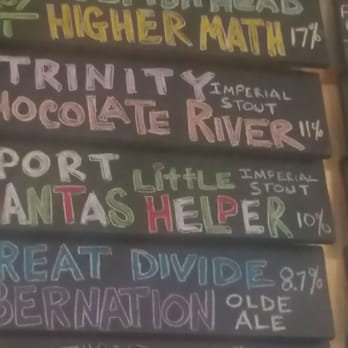 HIGHER MATH 17%
TRINITY IMPERIAL STOUT
HOCOLATE RIVER 11%
PORT Little IMPERIAL STOUT
ANTAS HELPER 10%
REAT DIVIDE 8.7%
BERNATION OLDE ALE